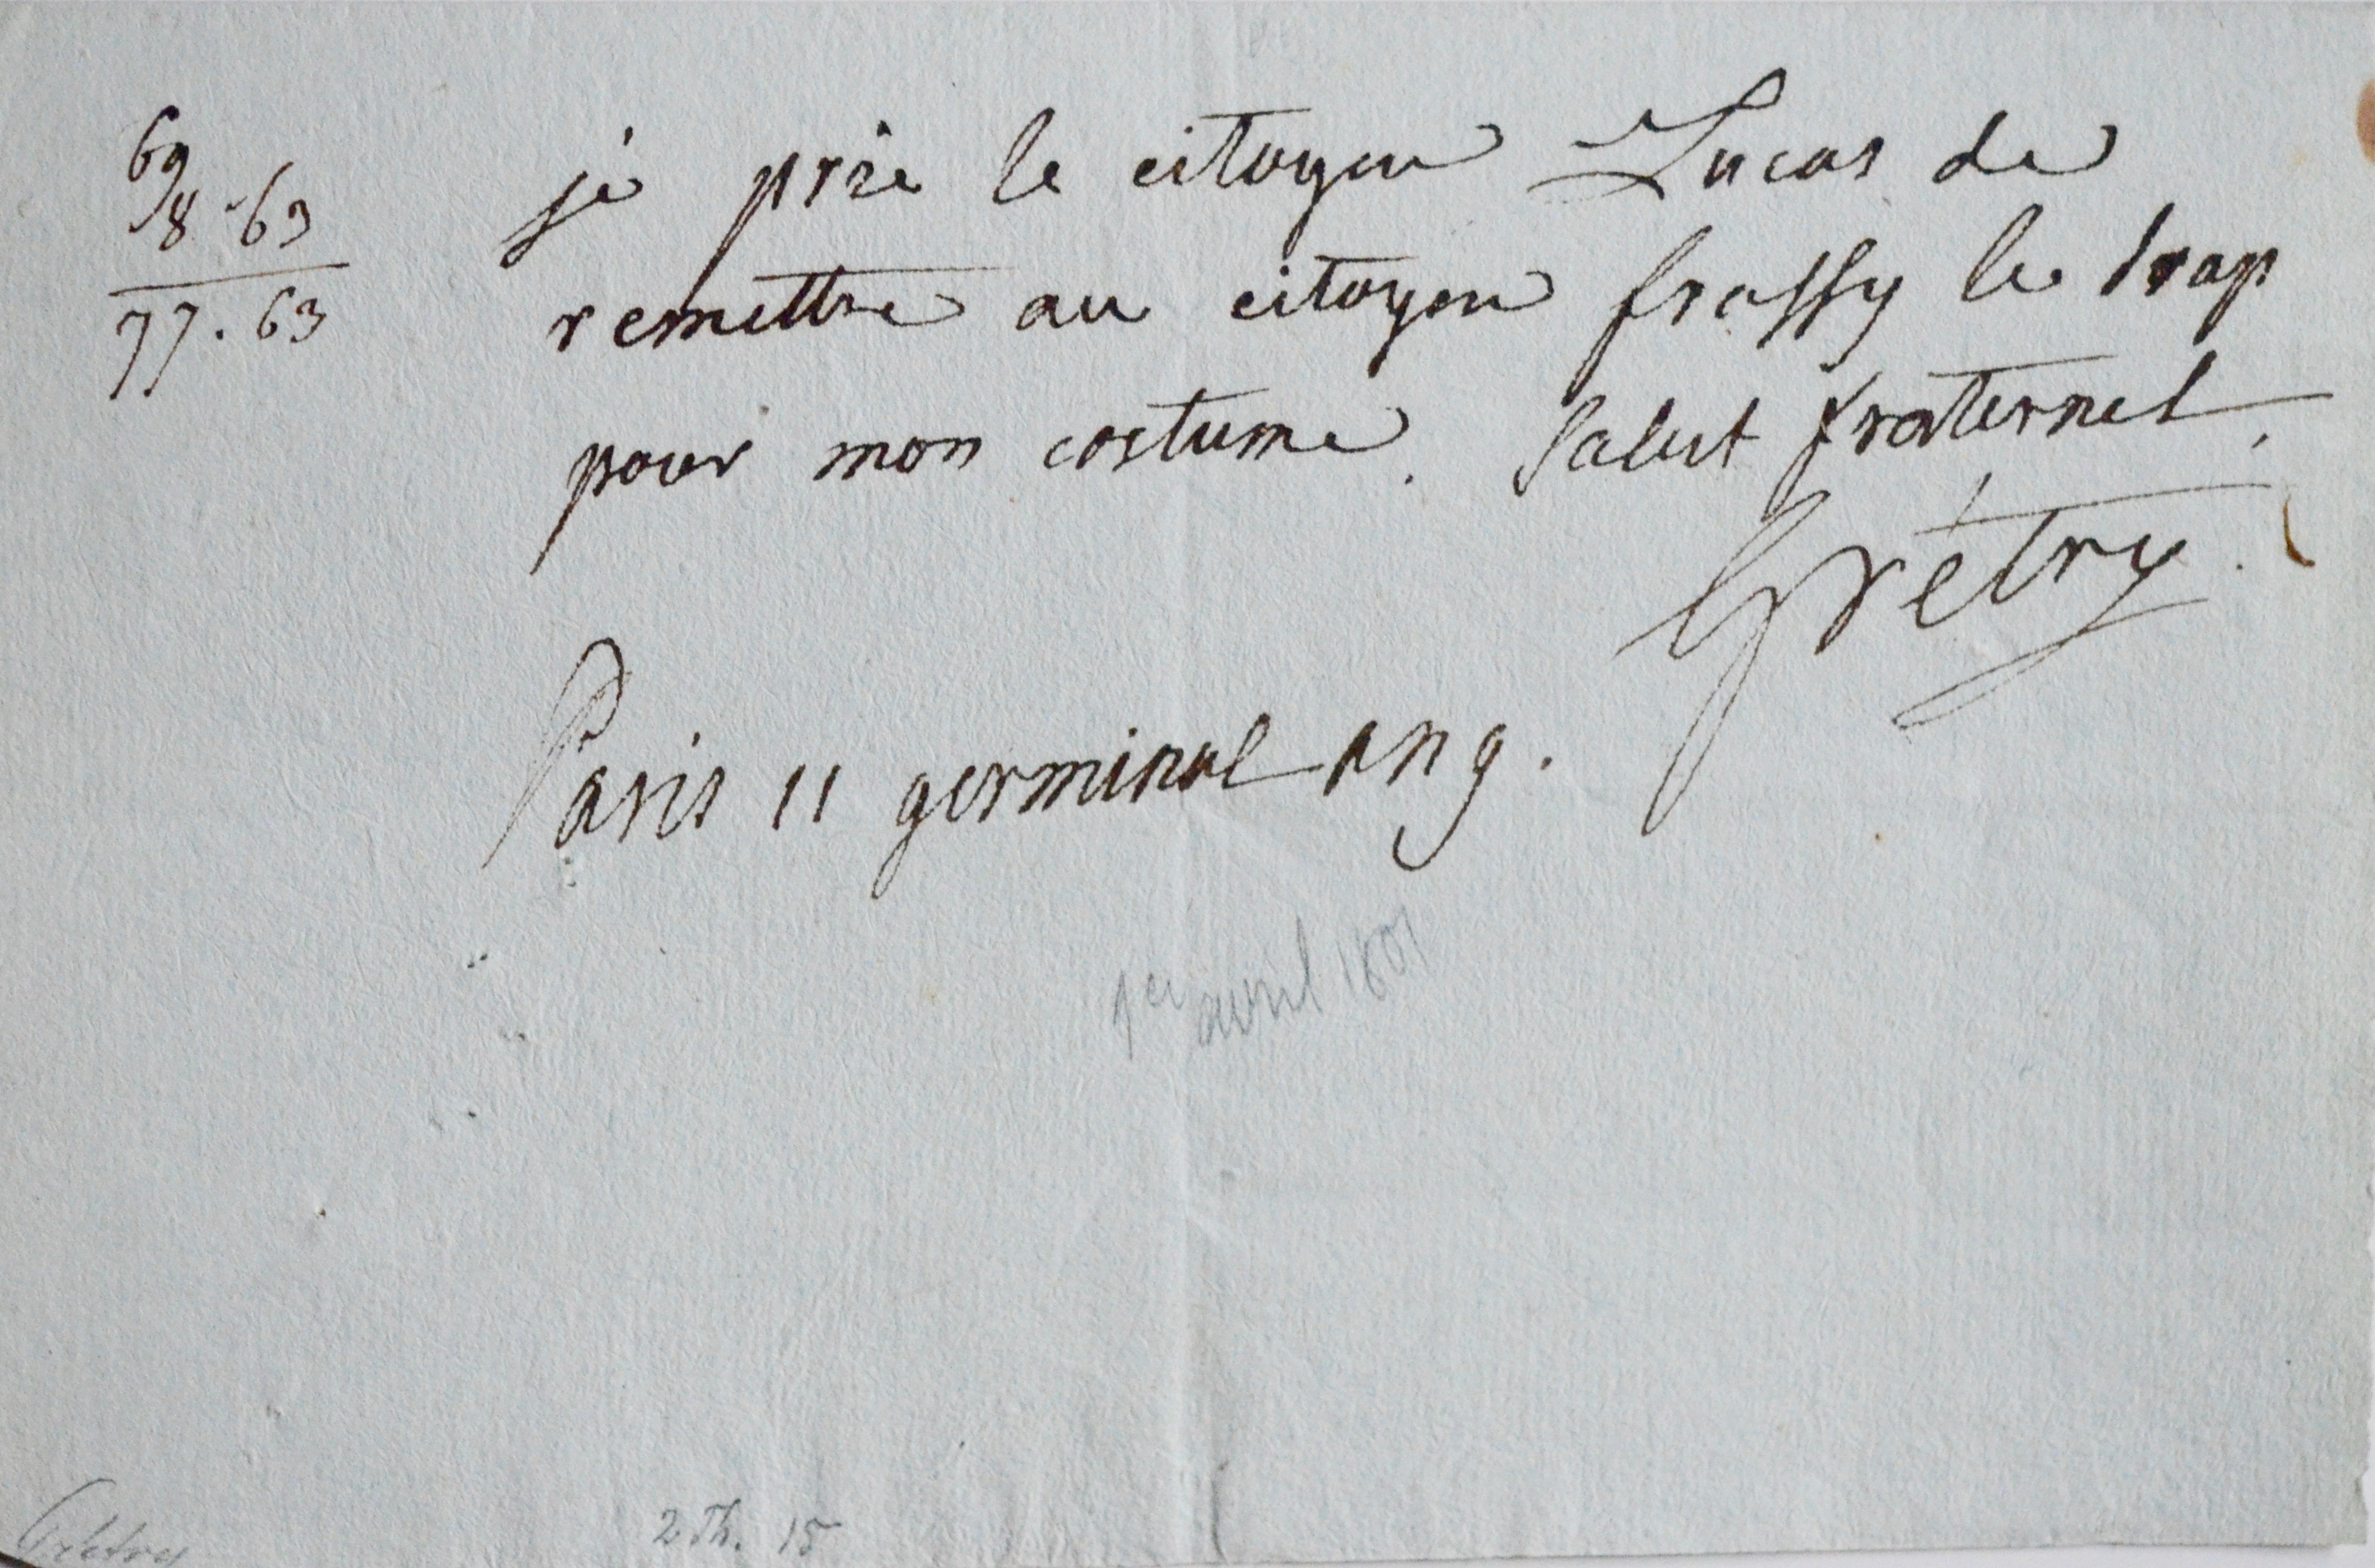 69
8-63
77.63
je prie le citoyen Lucas de
remettre au citoyen frassy le drap
pour mon costume. Salut fraternel.
Grétry.
Paris 11 germinal an 9.
1er avril 1801
Grétry
2 Th. 15